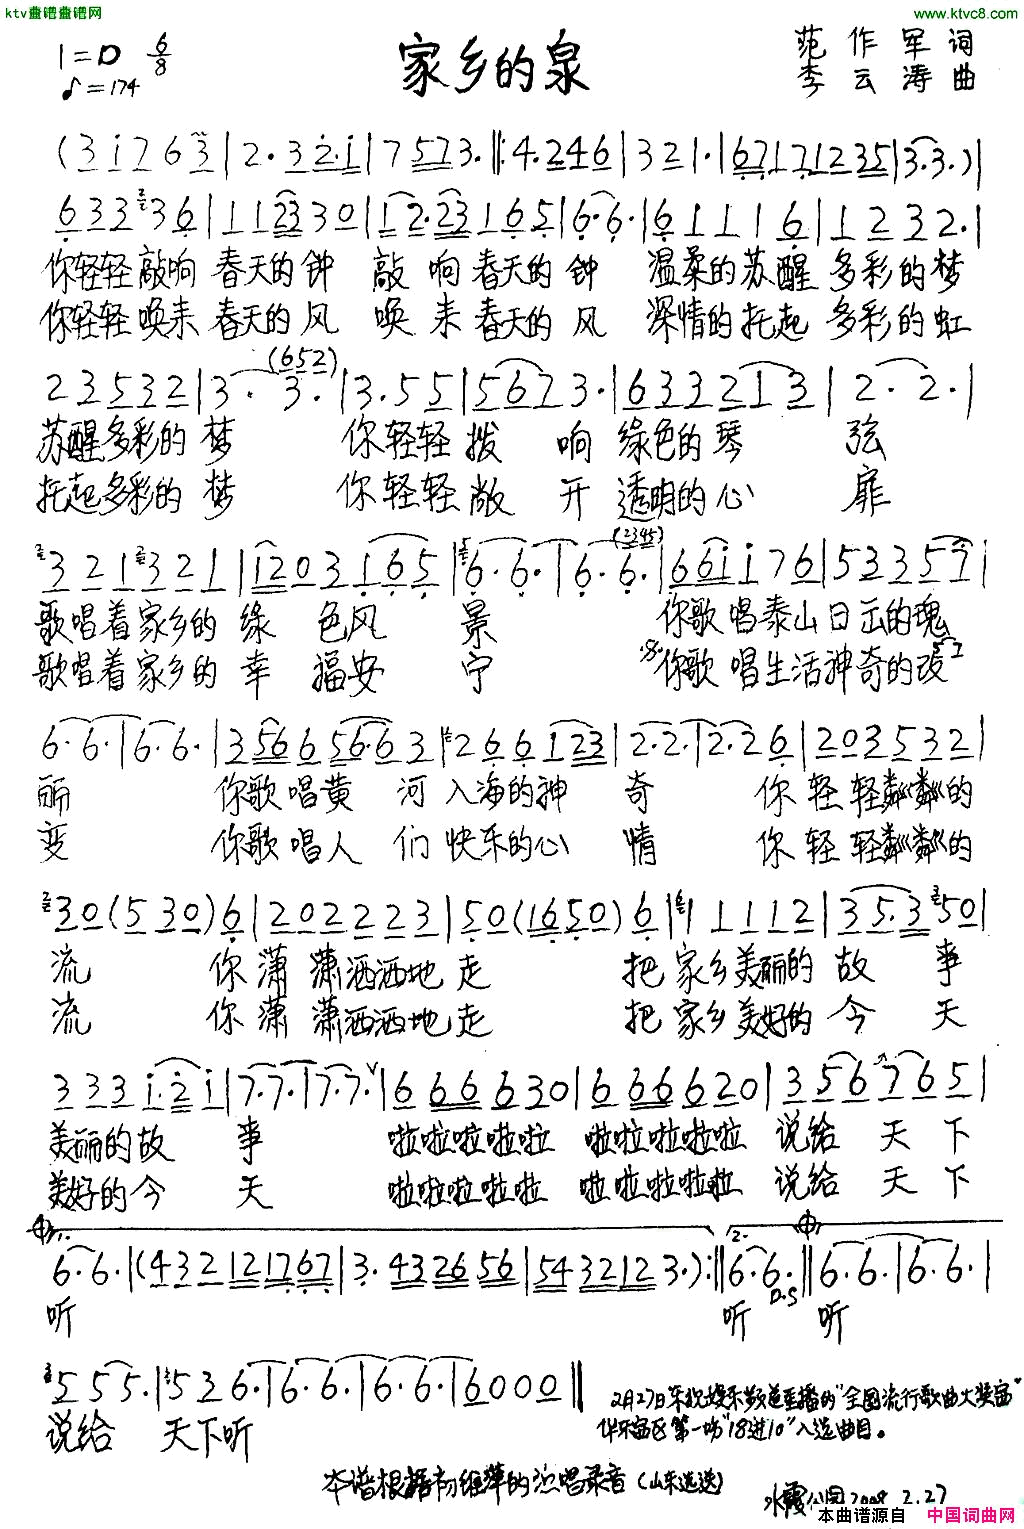 ktv歌谱歌谱网 www.ktvc8.com
1=D 6/8 家乡的泉 范作军 词
♪=174 李云涛 曲
(3 i 7 6 3 | 2. 3 2. i | 7 5 7 3. ‖: 4. 2 4 6 | 3 2 1. | 6 7 1 7 1 2 3 5 | 3. 3.) |
6 3 3 3 6 | 1 1 2 3 3 0 | 1 2. 2 3 1 6 5 | 6. 6. | 6 1 1 1 6 | 1 2 3 2. |
你轻轻敲响 春天的钟 敲 响春天的 钟 温柔的苏醒 多彩的梦
你轻轻唤来 春天的风 唤 来春天的 风 深情的托起 多彩的虹
(6 5 2)
2 3 5 3 2 | 3. 3. | 3. 5 5 | 5 6 7 3. | 6 3 3 2 1 3 | 2. 2. |
苏醒多彩的 梦 你轻轻 拨 响 绿色的 琴 弦
托起多彩的 梦 你轻轻 敞 开 透明的 心 扉
(2345)
3 2 1 3 2 1 | 1 2 0 3 1 6 5 | 6. 6. | 6. 6. | 6 6 i i 7 6 | 5 3 3 5 7 i |
歌唱着家乡的 绿 色风 景 你歌唱泰山日出的瑰
歌唱着家乡的 幸 福安 宁 𝄋 你歌唱生活神奇的改
6. 6. | 6. 6. | 3 5 6 6 5 6. 6 3 | 2 6 6 1 2 3 | 2. 2. | 2. 2 6 | 2 0 3 5 3 2 |
丽 你歌唱黄 河入海的神 奇 你轻轻粼粼的
变 你歌唱人 们快乐的心 情 你轻轻粼粼的
3 0 (5 3 0) 6 | 2 0 2 2 2 3 | 5 0 (1 6 5 0) 6 | 1 1 1 1 2 | 3 5. 3 5 0 |
流 你潇 潇洒洒地走 把家乡美丽的 故 事
流 你潇 潇洒洒地走 把家乡美好的 今 天
3 3 3 i. 2 i | 7. 7. | 7. 7. ∨ | 6 6 6 6 3 0 | 6 6 6 6 2 0 | 3 5 6 7 6 5 |
美丽的故 事 啦啦啦啦啦 啦啦啦啦啦 说给 天 下
美好的今 天 啦啦啦啦啦 啦啦啦啦啦 说给 天 下
1. 2.
6. 6. | (4 3 2 1 2 1 7 6 7 | 3. 4 3 2 6 5 6 | 5 4 3 2 1 2 3.) :‖ 6. 6. ‖ 6. 6. | 6. 6. |
D.S
听 听 听
5 5 5. | 5 3 6. | 6. 6. | 6. 6. | 6 0 0 0 ‖
说给 天下听
2月27日东视娱乐频道直播的"全国流行歌曲大奖赛"
华东赛区第一场"18进10"入选曲目。
本谱根据 的演唱录音(山东选送)
水霞 2.27
本曲谱源自 中国词曲网